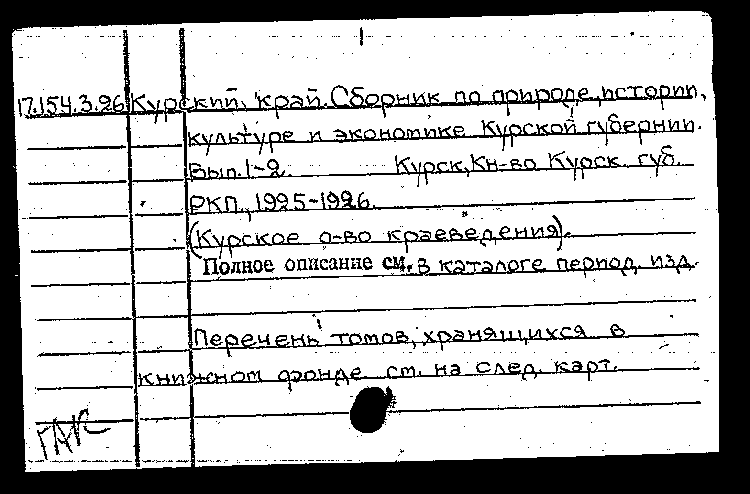 17.154.3.26 Курский край. Сборник по природе, истории,
культуре и экономике Курской губернии.
Вып. 1-2. Курск, Кн-во Курск. губ.
РКП., 1925-1926.
(Курское о-во краеведения).
Полное описание см. в каталоге период. изд.
Перечень томов, хранящихся в
книжном фонде см. на след. карт.
ГАК